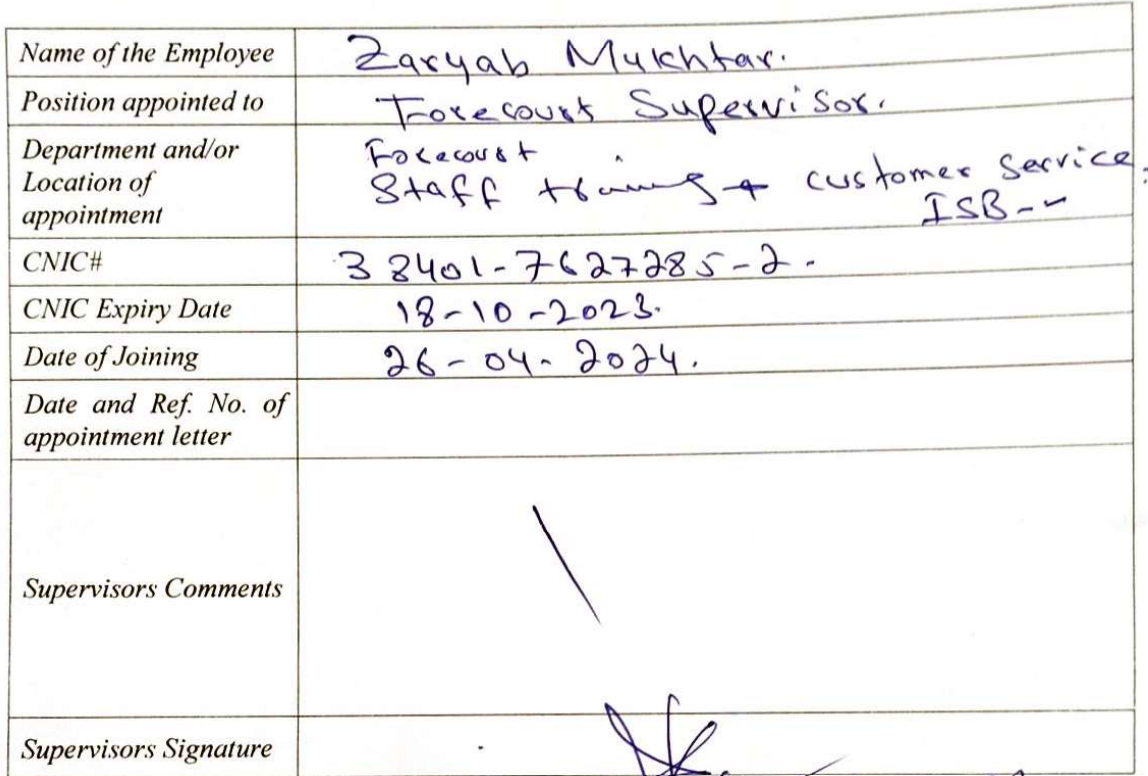 Name of the Employee Zaryab Mukhtar.
Position appointed to Forecourt Supervisor.
Department and/or Forecourt
Location of Staff training + customer service.
appointment ISB
CNIC# 38401-7627285-2.
CNIC Expiry Date 18-10-2023.
Date of Joining 26-04-2024.
Date and Ref. No. of
appointment letter
Supervisors Comments
Supervisors Signature